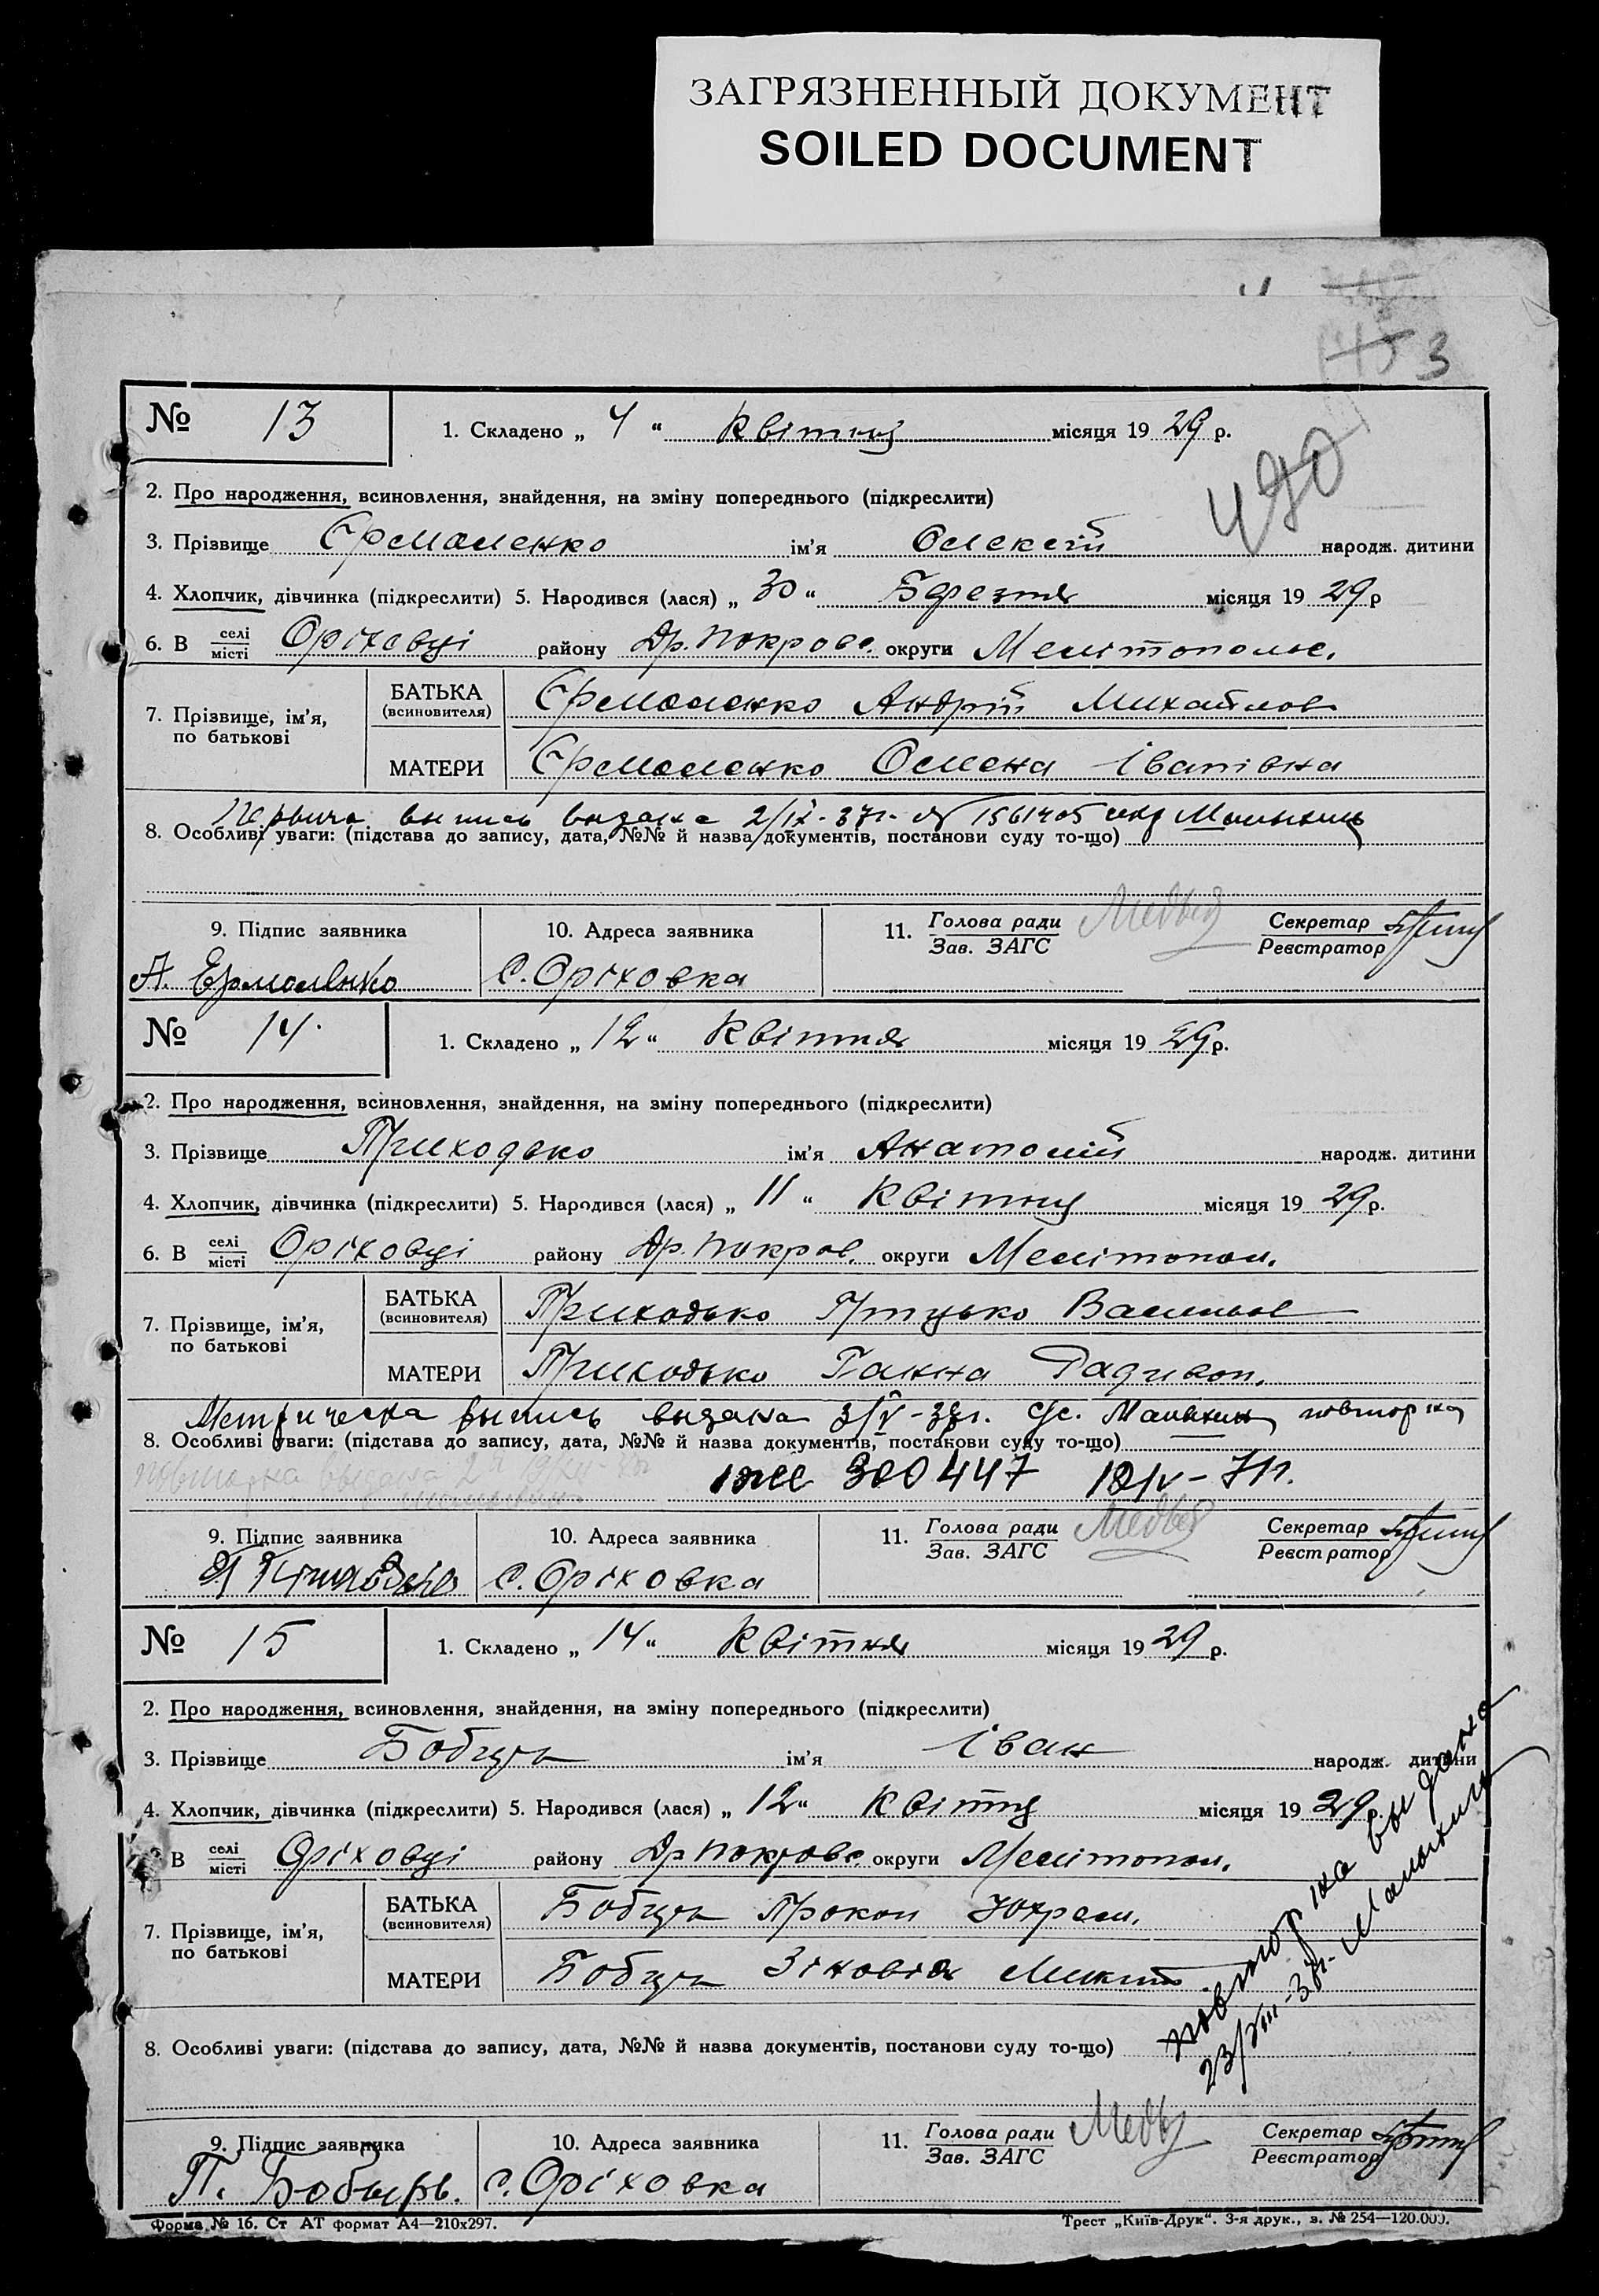 ЗАГРЯЗНЕННЫЙ ДОКУМЕНТ
SOILED DOCUMENT
3
№ 13 1. Складено „ 4 “ Квітня місяця 1929 р.
490
2. Про народження, всиновлення, знайдення, на зміну попереднього (підкреслити)
3. Прізвище Єрмоленко ім'я Олексій народж. дитини
4. Хлопчик, дівчинка (підкреслити) 5. Народився (лася) „ 30 “ Березня місяця 1929 р
6. В селі місті Оріховці району Др. Покровс. округи Мелітопольс.
7. Прізвище, ім'я, по батькові
БАТЬКА (всиновителя) Єрмоленко Андрій Михайлов
МАТЕРИ Єрмоленко Олена Іванівна
выпись выдана 2/IX-37г.
8. Особливі уваги: (підстава до запису, дата, №№ й назва документів, постанови суду то-що)
9. Підпис заявника 10. Адреса заявника 11. Голова ради Зав. ЗАГС Медвед Секретар Реєстратор
А. Ермоленко с. Оріховка
№ 14. 1. Складено „ 12 “ Квітня місяця 1929 р.
2. Про народження, всиновлення, знайдення, на зміну попереднього (підкреслити)
3. Прізвище Приходько ім'я Анатолій народж. дитини
4. Хлопчик, дівчинка (підкреслити) 5. Народився (лася) „ 11 “ Квітня місяця 1929 р.
6. В селі місті Оріховці району Др. Покров. округи Мелітопол.
7. Прізвище, ім'я, по батькові
БАТЬКА (всиновителя) Приходько Грицько Васильов
МАТЕРИ Приходько Ганна Радивон.
Метрическа выпись выдана повторна
8. Особливі уваги: (підстава до запису, дата, №№ й назва документів, постанови суду то-що)
повторна выдана
300447
9. Підпис заявника 10. Адреса заявника 11. Голова ради Зав. ЗАГС Медвед Секретар Реєстратор
с. Оріховка
№ 15 1. Складено „ 14 “ Квітня місяця 1929 р.
2. Про народження, всиновлення, знайдення, на зміну попереднього (підкреслити)
3. Прізвище Бобирь ім'я Іван народж. дитини
4. Хлопчик, дівчинка (підкреслити) 5. Народився (лася) „ 12 “ Квітня місяця 1929 р.
В селі місті Оріховці району Др Покровс. округи Мелітопол.
7. Прізвище, ім'я, по батькові
БАТЬКА (всиновителя) Бобирь Прокоп Юхрем.
МАТЕРИ Бобирь Зіновія Микит
повторна выдана
23/VIII-37г. Малыхин
8. Особливі уваги: (підстава до запису, дата, №№ й назва документів, постанови суду то-що)
9. Підпис заявника 10. Адреса заявника 11. Голова ради Зав. ЗАГС Медвед Секретар Реєстратор
П. Бобырь. с. Оріховка
Форма № 16. Ст АТ формат А4—210х297. Трест „Київ-Друк“. 3-я друк., з. № 254—120.000.